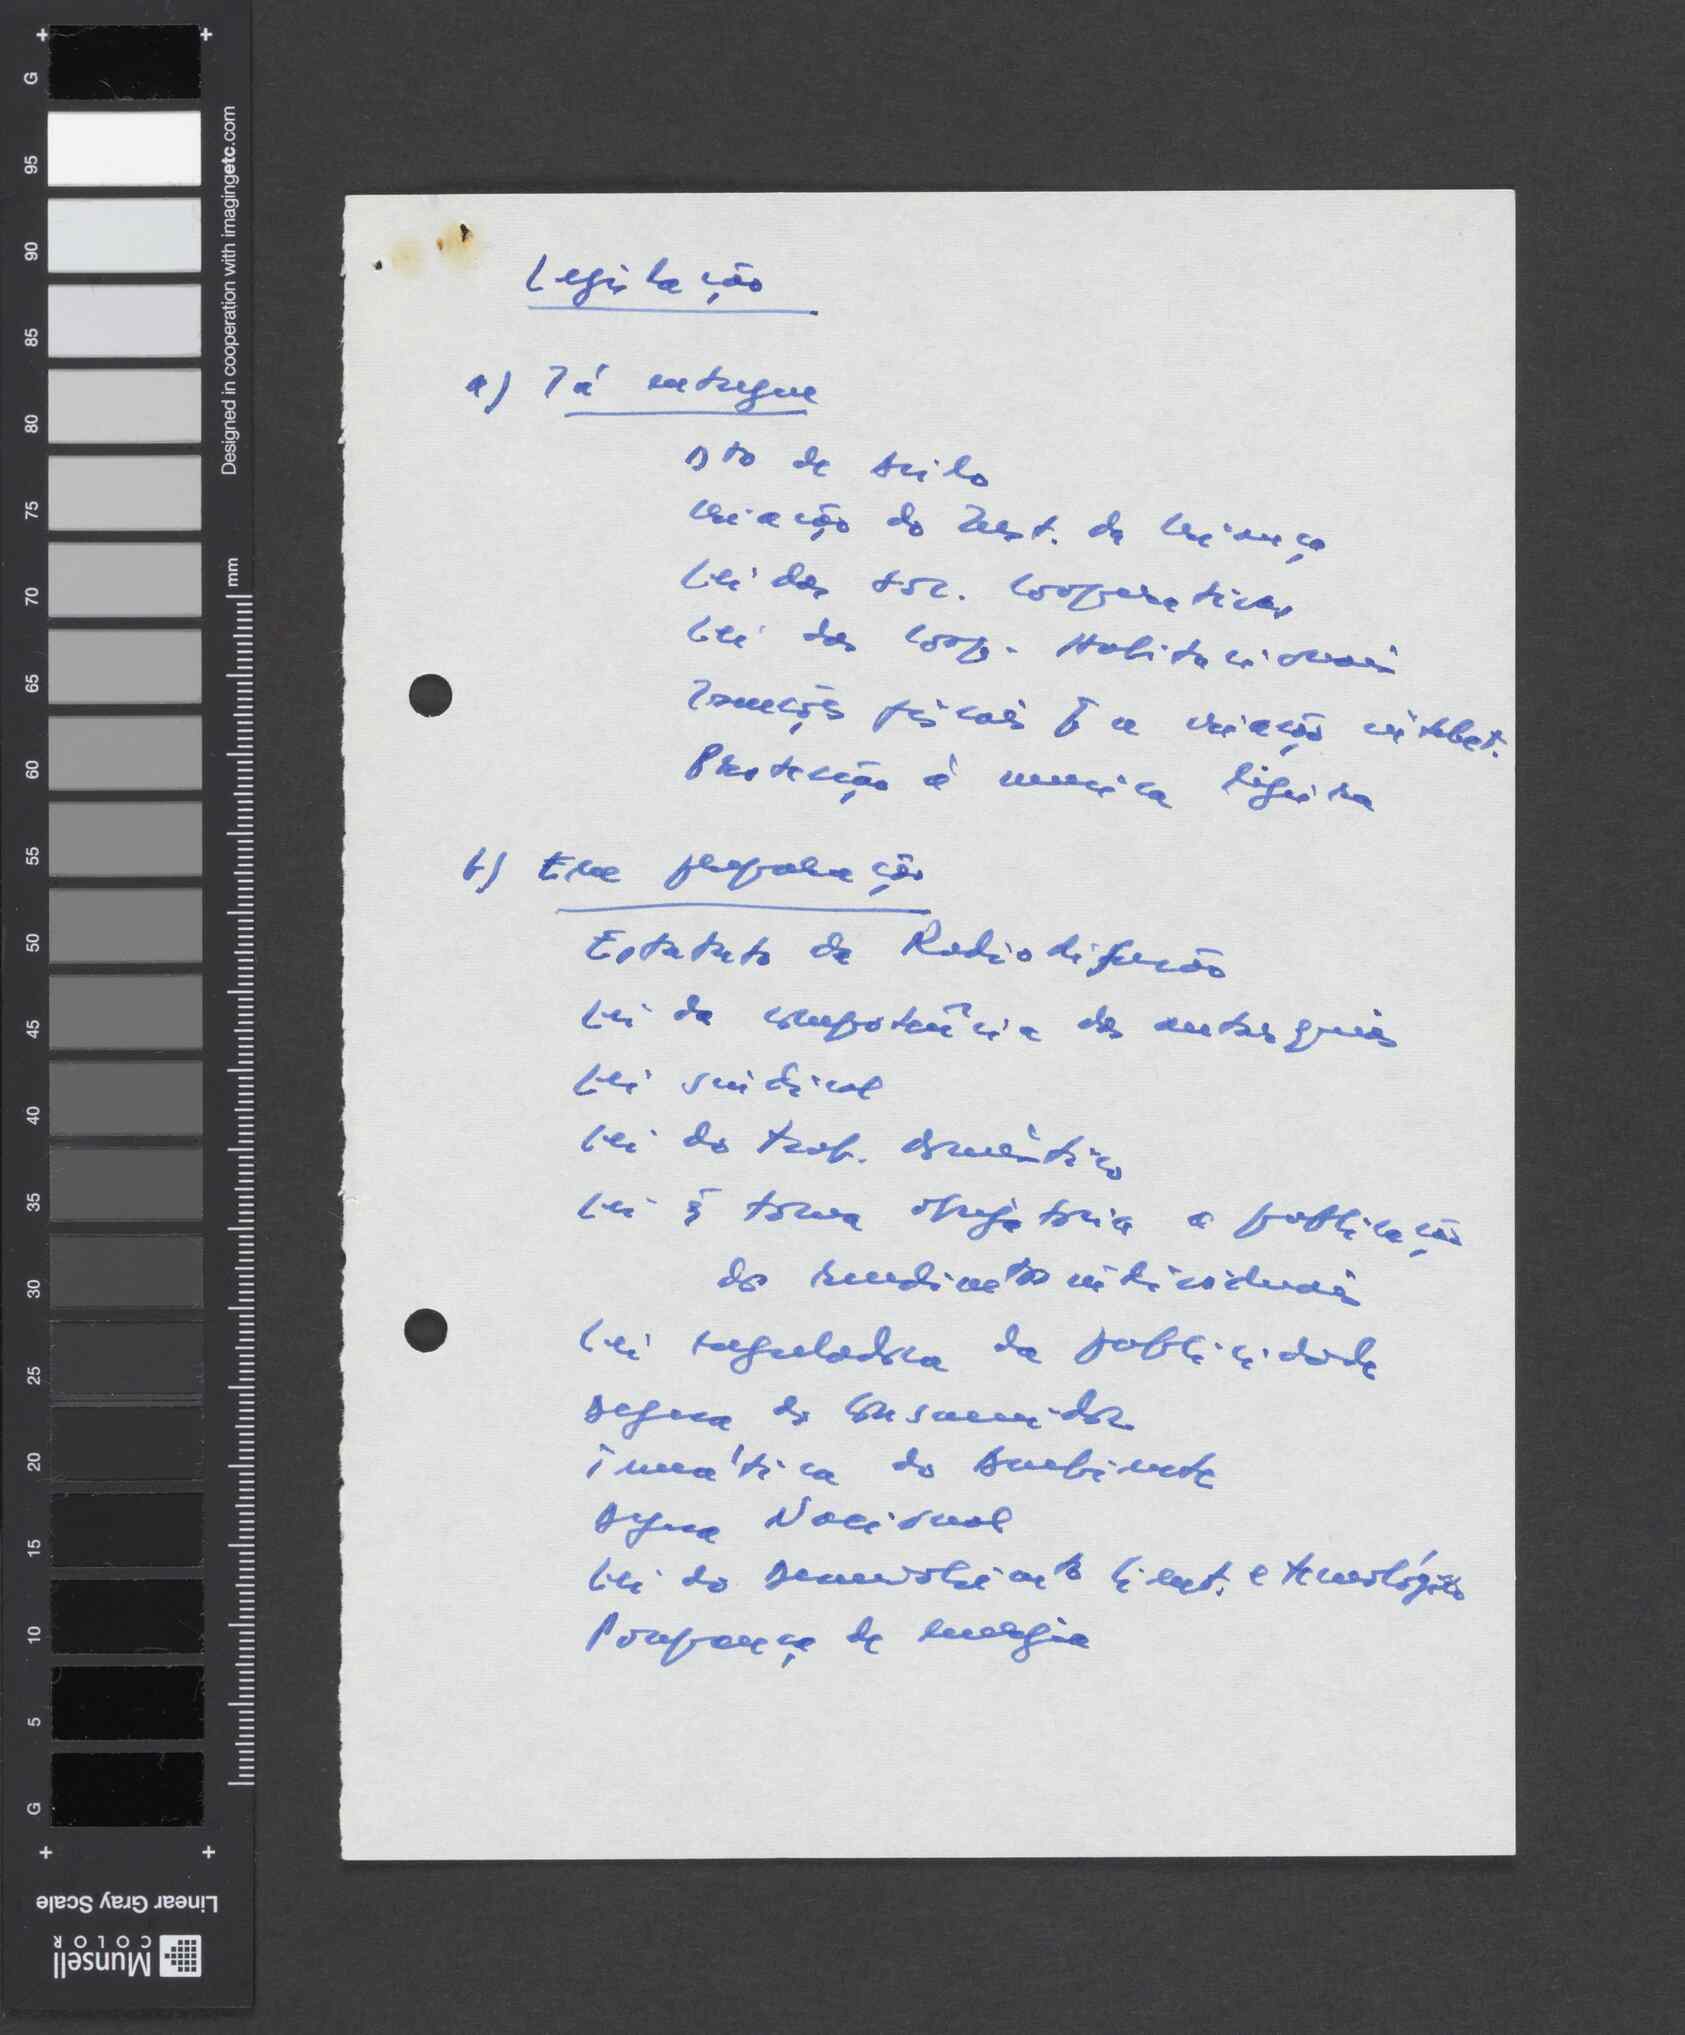 Legislação
a) Já entregue
Dto de Asilo
Criação do Inst. da Criança
Lei das Soc. Cooperativas
Lei das Coop. Habitacionais
Isenções fiscais a criação intelect.
Protecção à musica ligeira
b) Em preparação
Estatuto da Radiodifusão
Lei da competência das autarquias
Lei sindical
Lei do trab. doméstico
Lei q̃ torna obrigatoria a publicação
dos rendimetos individuais
Lei reguladora da publicidade
Defesa do Consumidor
do Ambiente
Defesa Nacional
Lei do Desenvolvimto Cient. e tecnológico
Poupança de energia
G
95
90
85
80
75
70
65
60
55
50
45
40
35
30
25
20
15
10
5
G
Designed in cooperation with imagingetc.com
mm
Linear Gray Scale
Munsell
COLOR